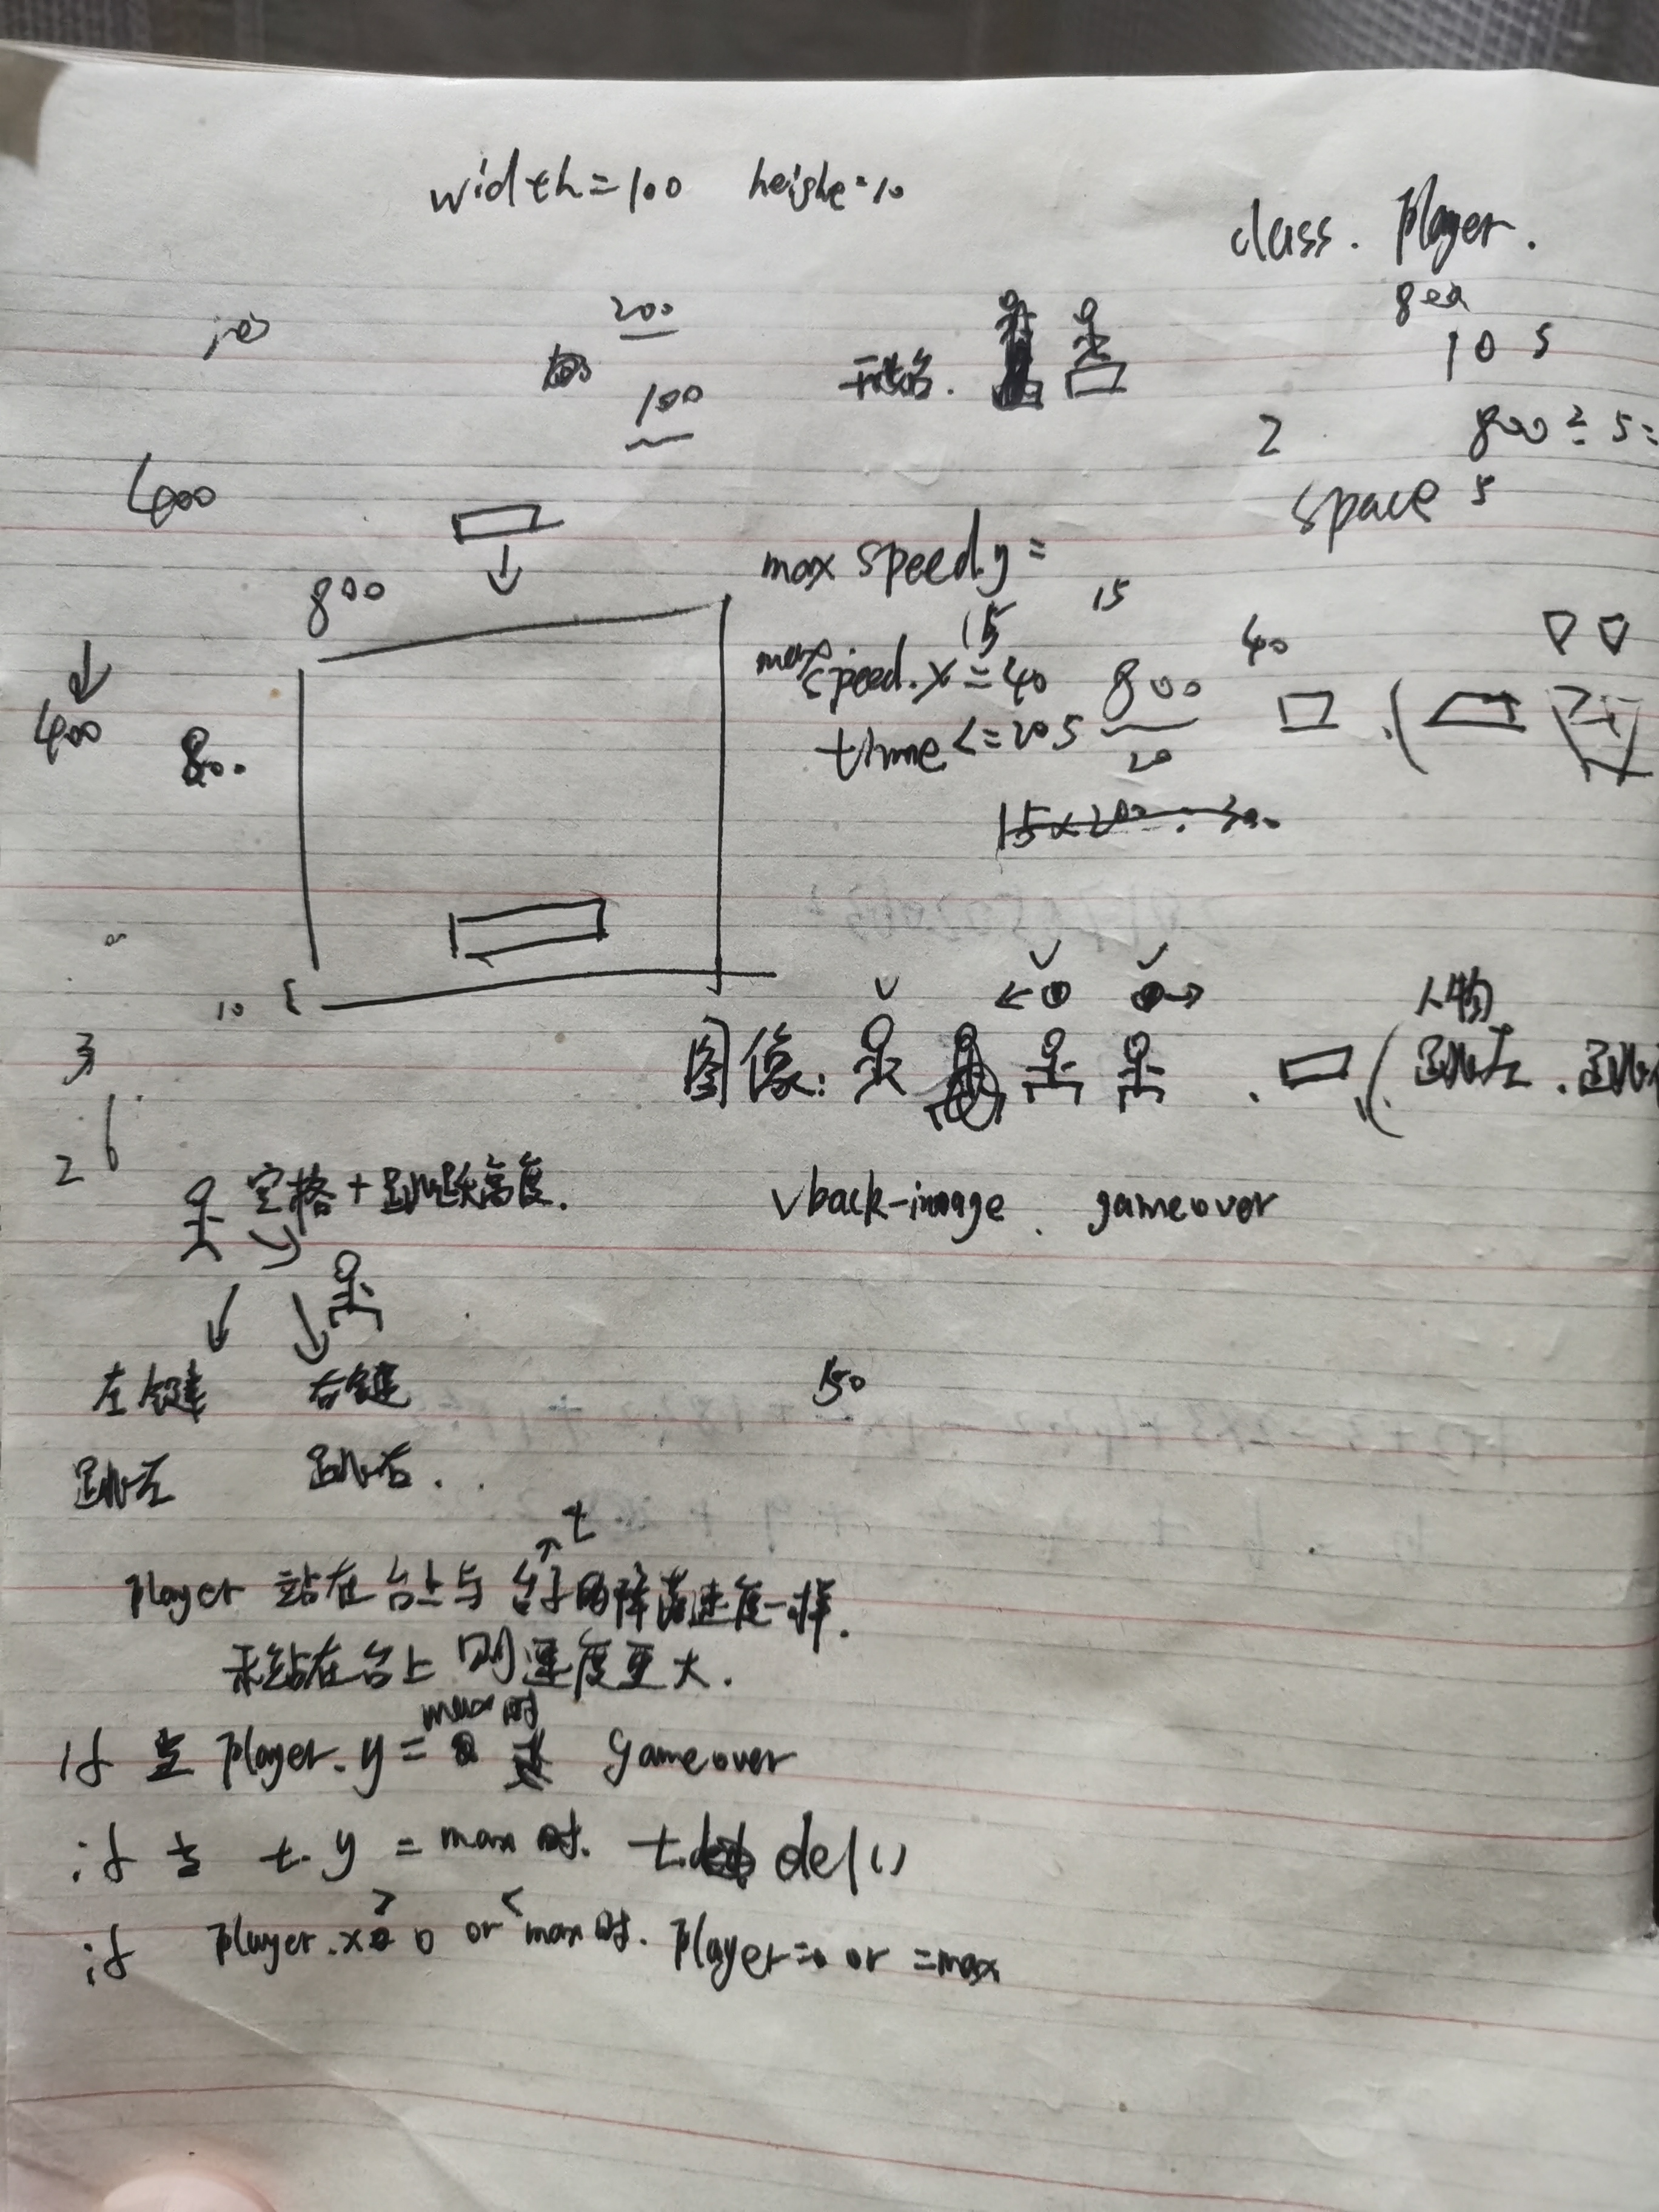 width=100 height=10
class. Player.
200
10 5
100
开始.
2
800 ÷ 5=
400
space 5
max speed.y =
15
800
15
40
max speed.x = 40
800
400
800
time <= 20 s
20
10
人物
图像:
跳左.
3
2
空格+跳跃高度.
back-image. gameover
左键 右键
150
跳左 跳右.
t
Player 站在台上与台子的降落速度一样.
未站在台上 则速度更大.
max时
if 当 Player.y = gameover
if 当 t.y = max 时. t. del()
> <
if Player.x 0 or max 时. Player=0 or =max